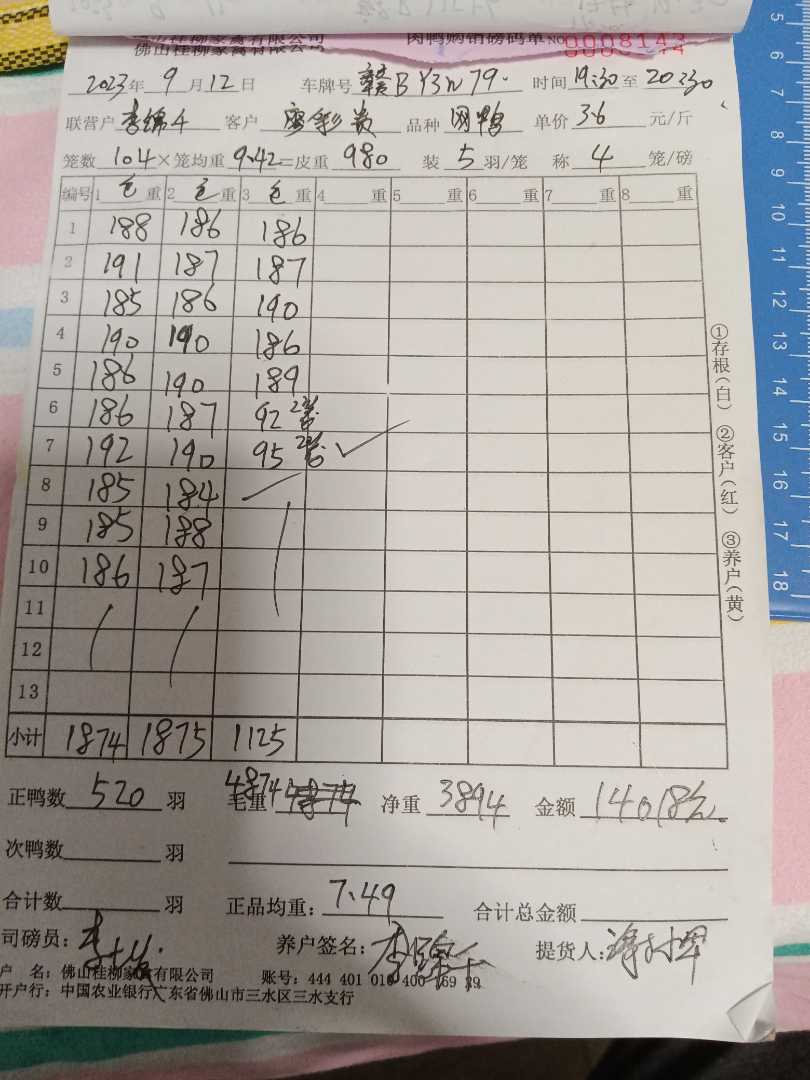 佛山桂柳家禽有限公司 肉鸭购销磅码单 NO 0008143
佛山桂柳家禽有限公司
2023年 9月12日 车牌号 赣BY3W79 时间 19:30 至 20:30
联营户 李锦千 客户 品种 网鸭 单价 3.6 元/斤
笼数 104 × 笼均重 9.42 = 皮重 980 装 5 羽/笼 称 4 笼/磅
编号 1 毛重 2 毛重 3 毛重 4 重 5 重 6 重 7 重 8 重
1 188 186 186
2 191 187 187
3 185 186 190
4 190 190 186
5 186 190 189
6 186 187 92 2笼
7 192 190 95 2笼
8 185 184
9 185 188
10 186 187
11
12
13
小计 1874 1875 1125
正鸭数 520 羽 毛重 4874 净重 3894 金额 14018元
次鸭数 羽
合计数 羽 正品均重: 7.49 合计总金额
司磅员: 养户签名: 李锦千 提货人:
户 名: 佛山桂柳家禽有限公司 账号: 444 401 010 400 169 29
开户行: 中国农业银行广东省佛山市三水区三水支行
①存根(白) ②客户(红) ③养户(黄)
5
6
7
8
9
10
11
12
13
14
15
16
17
18